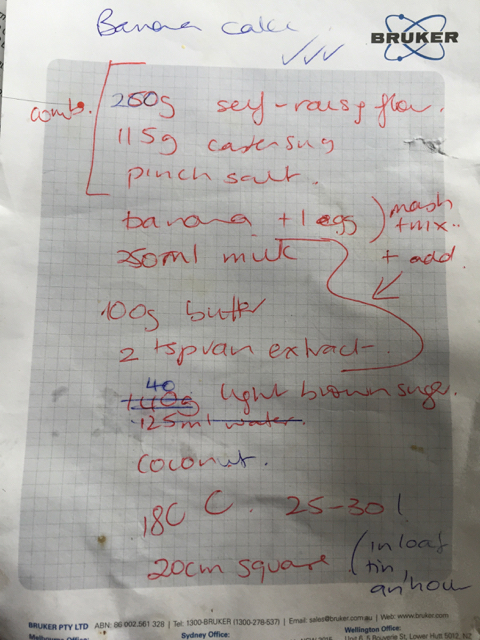 Banana cake
BRUKER
comb.
250g self-raising flour.
115g caster sug
pinch salt.
banana + 1 egg ) mash + mix..
250ml milk + add
100g butter
2 tsp van extract
40
140g light brown sugar.
125ml water
coconut.
180 C. 25-30'
20cm square (in loaf
tin,
an hour
BRUKER PTY LTD ABN: 86 002 561 328 | Tel: 1300-BRUKER (1300-278-537) | Email: sales@bruker.com.au | Web: www.bruker.com
Melbourne Office: Sydney Office: Wellington Office:
Lower Hutt 5012, NZ